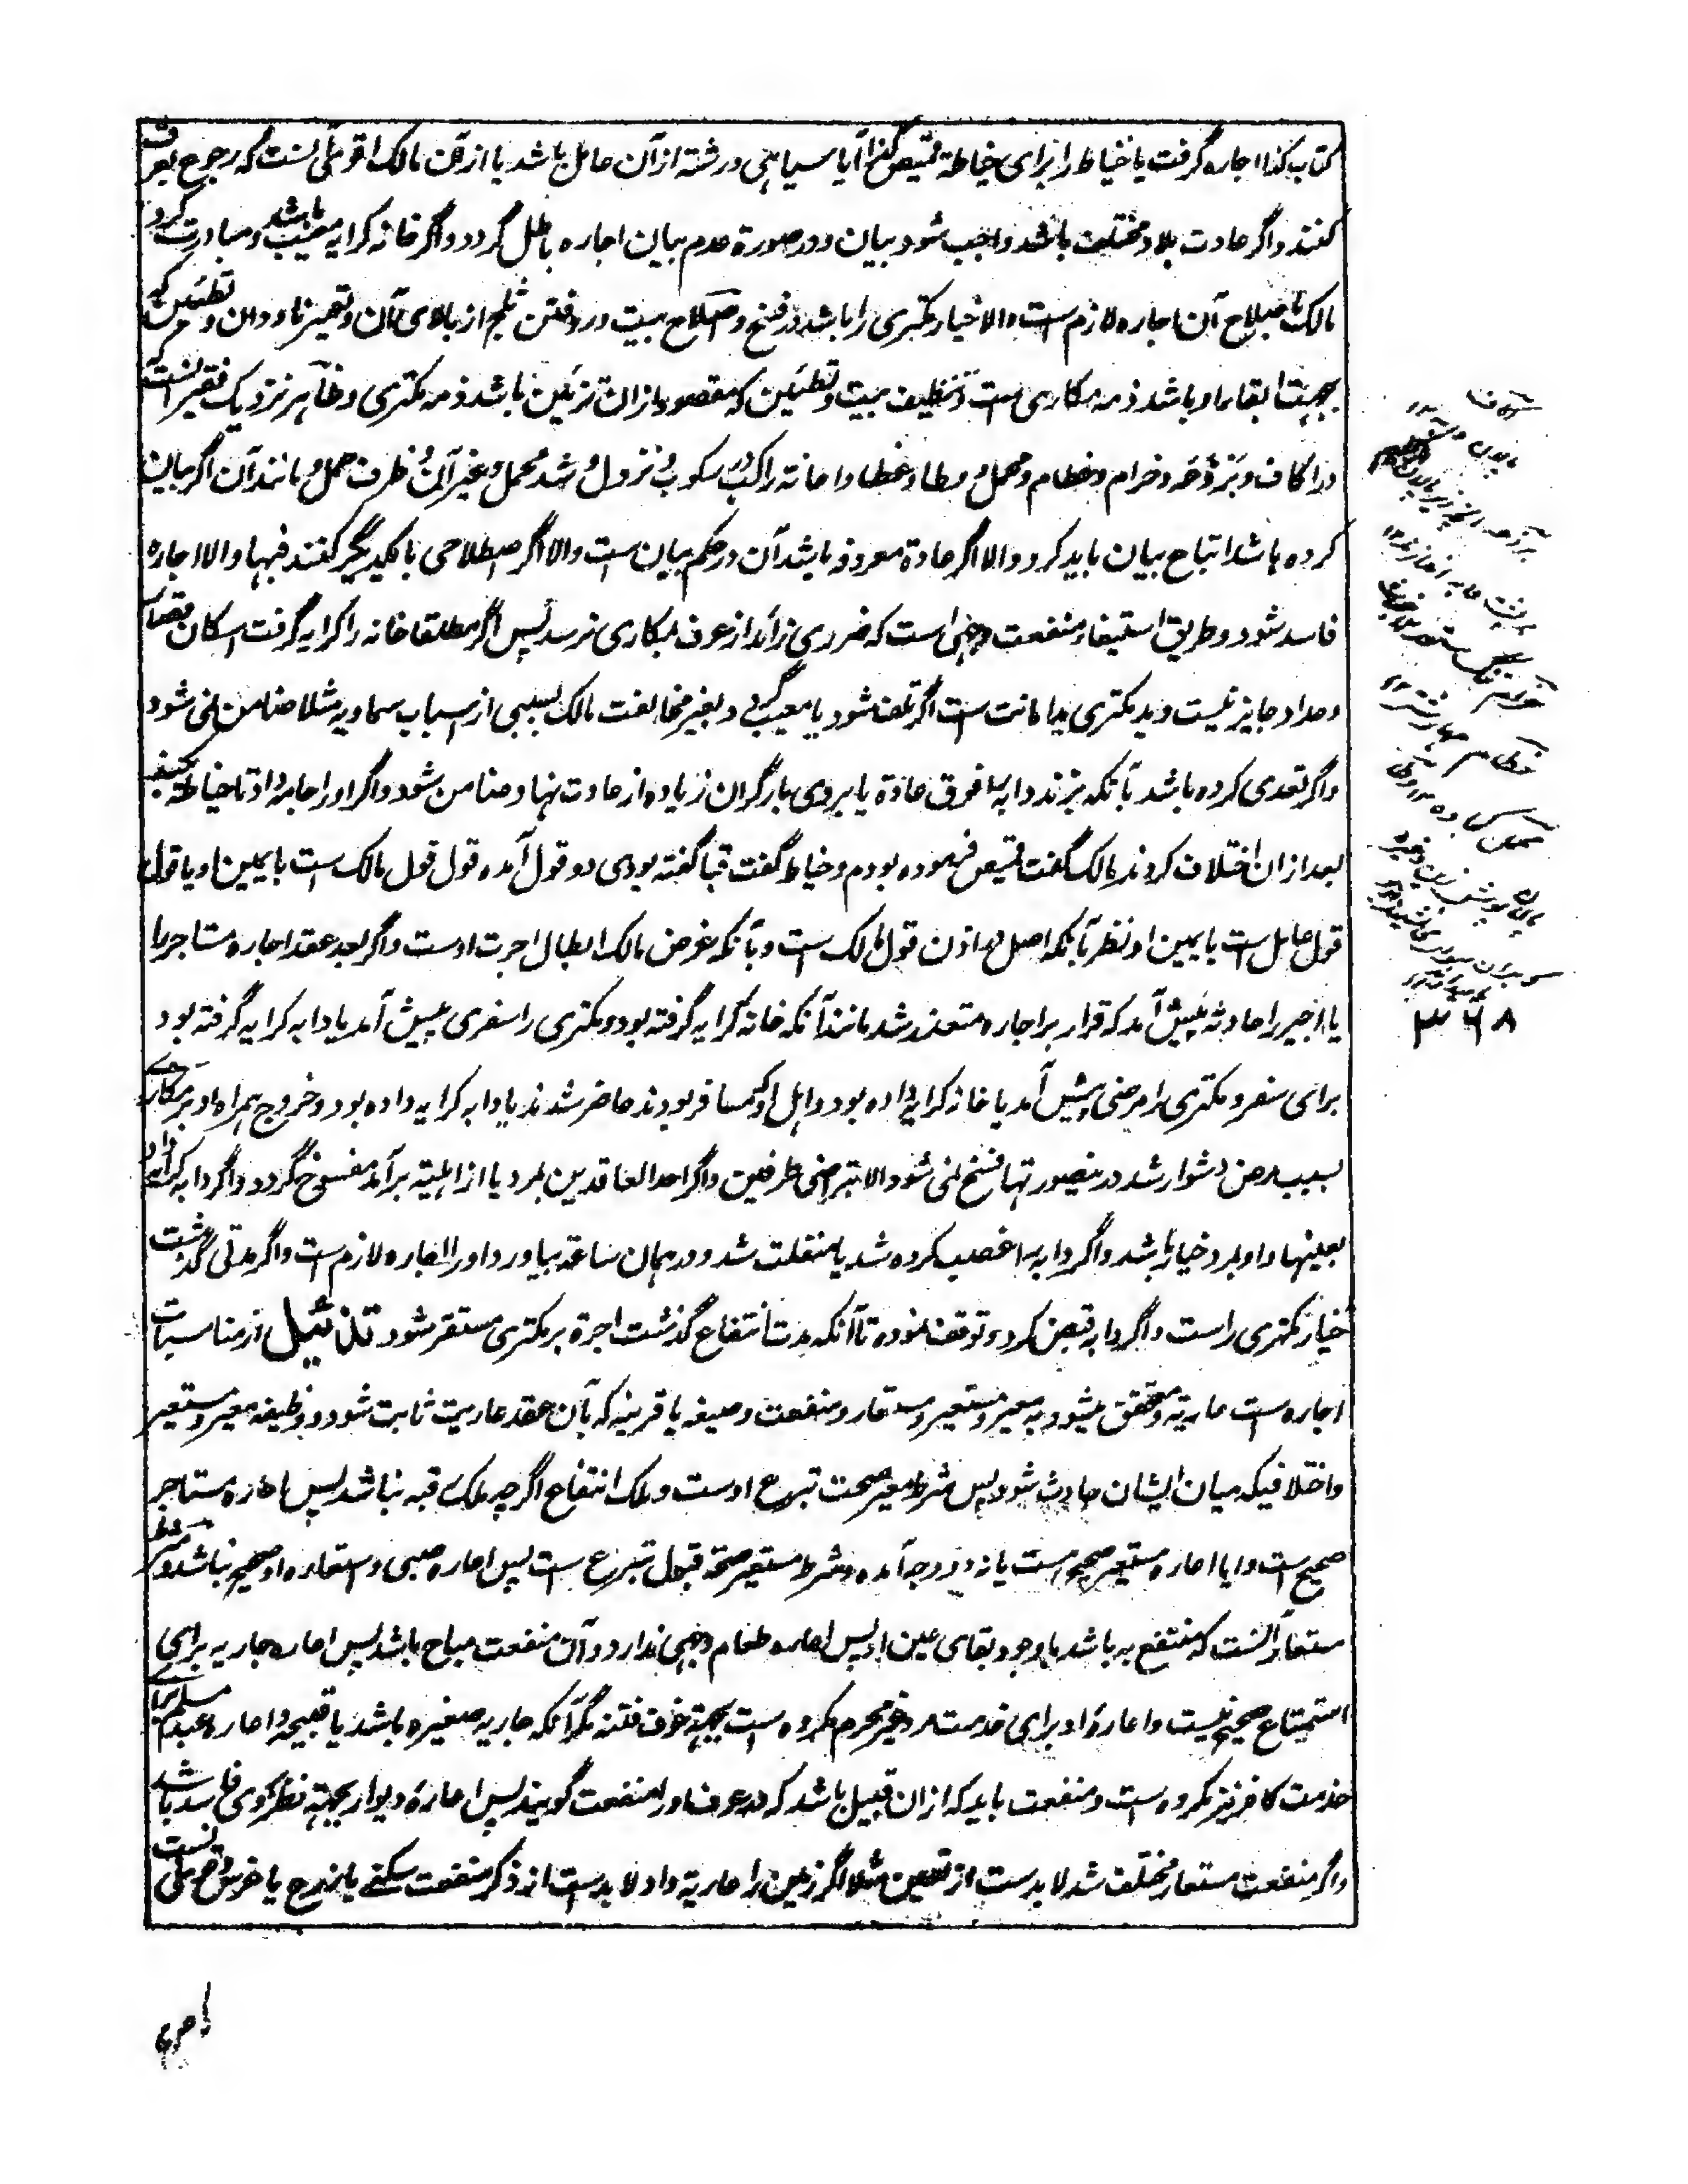 کتاب کذا اجاره گرفت یا خیاط را برای خیاطة قمیص کذا آیا سیاهی و رشته از آن عامل باشد یا از آن مالک اقوی آنست که رجوع بعرف
کنند و اگر عادت بلاد مختلف باشد واجب شود بیان و در صورة عدم بیان اجاره باطل گردد و اگر خانه کرایه معیب باشد و مبادرت کرد
مالک باصلاح آن اجاره لازم است و الا خیار مکتری را باشد در فسخ و اصلاح بیت و روفتن ثلج از بالای آن و تعمیر ناودان و تطئین که
بجهت ابقاء او باشد ذمه مکاری است و تنظیف بیت و تطئین که مقصود ازان تزئین باشد ذمه مکتری و ظاهر نزدیک فقیر آنست که
در اکاف و بَرذَعَه و خرام و خطام و محمل و وطا و غطا و اعانه راکب در رکوب و نزول و شد محمل و غیر آن و ظرف حمل و مانند آن اگر بیان
کرده باشد اتباع بیان باید کرد و الا اگر عادة معروفه باشد آن در حکم بیان است و الا اگر اصطلاحی با یکدیگر کنند فبها و الا اجاره
فاسد شود و طریق استیفاء منفعت وجهی است که ضرری زائد از عرف بمکاری نرسد پس اگر مطلقا خانه را کرایه گرفت اسکان قصار
و حداد جایز نیست و ید مکتری ید امانت است اگر تلف شود یا معیب گردد بغیر مخالفت مالک بسببی از اسباب سماویه مثلا ضامن نمی شود
و اگر تعدی کرده باشد بآنکه بزند دابه را فوق عادة یا بروی بار گران زیاده از عادت نهاد ضامن شود و اگر او را جامه داد تا خیاطه کند
بعد ازان اختلاف کردند مالک گفت قمیص فرموده بودم و خیاط گفت قبا گفته بودی دو قول آمده قول قول مالک است با یمین او یا قول
قول عامل است با یمین او نظر بآنکه اصل در اذن قول مالک است و بآنکه غرض مالک ابطال اجرت اوست و اگر بعد عقد اجاره مستاجر را
یا اجیر را حادثه پیش آمد که قرار بر اجاره متعذر شد مانند آنکه خانه کرایه گرفته بود و مکتری را سفری پیش آمد یا دابه کرایه گرفته بود
برای سفر و مکتری را مرضی پیش آمد یا خانه کرایه داده بود و اهل او که مسافر بودند حاضر شدند یا دابه کرایه داده بود و خروج همراه او بر مکاری
بسبب مرض دشوار شد درینصورتها فسخ نمی شود الا بتراضی طرفین و اگر احد العاقدین بمرد یا از اهلیته برآمد مفسوخ گردد و اگر دابه کرایه داد
بعینها و او بمرد خیار باشد و اگر دابه را غصب کرده شد یا منفلت شد و در همان ساعة بیاورد او را اجاره لازم است و اگر مدتی گذشت
خیار مکتری راست و اگر دابه قبض کرد و توقف نموده تا آنکه مدت انتفاع گذشت اجرة بر مکتری مستقر شود تذئیل از مناسبات
اجاره است عاریة و متحقق میشود به معیر و مستعیر و مستعار و منفعت و صیغه یا قرینه که بآن عقد عاریت ثابت شود و وظیفه معیر و مستعیر
و اختلافیکه میان ایشان حادث شود پس شرط معیر صحت تبرع اوست و ملک انتفاع اگر چه ملک رقبه نباشد پس اعاره مستاجر
صحیح است و ایا اعاره مستعیر صحیح است یا نه دو وجه آمده و شرط مستعیر صحة قبول تبرع است پس اعاره صبی و استعاره او صحیح نباشد و شرط
مستعار آنست که منتفع به باشد با وجود بقای عین او پس اعاره طعام وجهی ندارد و آن منفعت مباح باشد پس اعاره جاریه برای
استمتاع صحیح نیست و اعارهٔ او برای خدمت مرد غیر محرم مکروه است بجهة خوف فتنه مگر آنکه جاریه صغیره باشد یا قبیحه و اعاره عبد مسلم برای
خدمت کافر نیز مکروه است و منفعت باید که ازان قبیل باشد که در عرف او را منفعت گویند پس اعارهٔ دیوار بجهة نظر کردن فاسد باشد
و اگر منفعت مستعار مختلف شد لا بد است از تعیین مثلا اگر زمین را عاریة داد لا بد است از ذکر منفعت سکنے یا زرع یا غرس و حق
۳۶۸